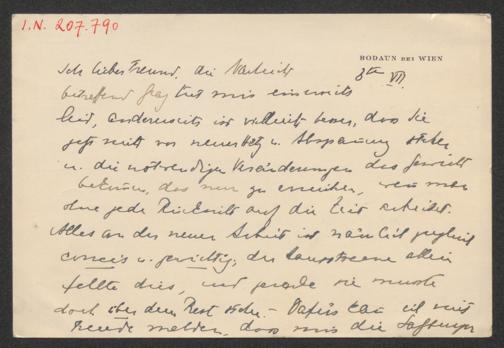 I.N. 207.790
RODAUN BEI WIEN
8ten VII.
lieber Freund, die Nachricht
betreffend tut mir einerseits
leid, andererseits ist vielleicht besser, dass Sie
jetzt nicht vor neuer Hetz u. Abspannung stehen
u. die notwendigen Veränderungen das Gewicht
bekommen, das nur zu erreichen, wenn man
ohne jede Rücksicht auf die Zeit arbeitet.
Alles an der neuen Arbeit ist nämlich
concis u. gewichtig, der allein
fehlte dies, und gerade sie musste
doch über dem Rest stehen. – Dafür kann ich mit
Freude melden, dass mir die